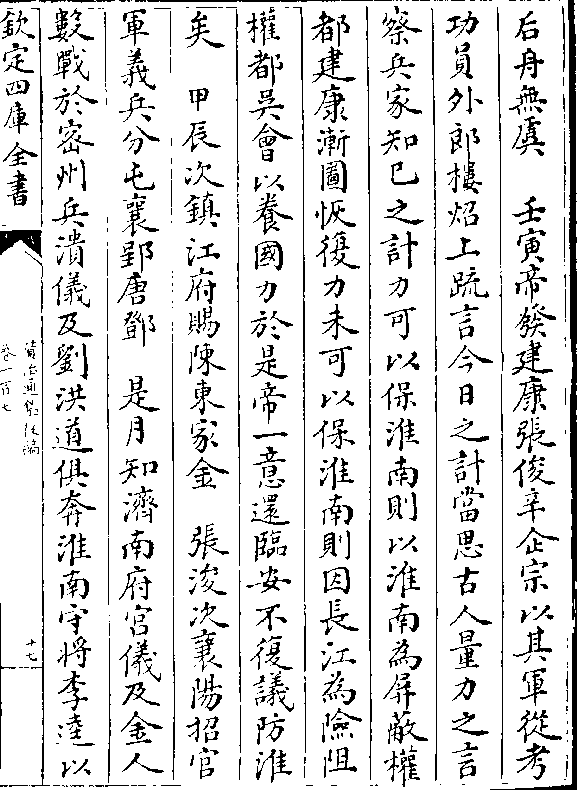 后舟無虞　壬寅帝發建康張俊辛企宗以其軍從考
功員外郎樓炤上疏言今日之計當思古人量力之言
察兵家知已之計力可以保淮南則以淮南為屏蔽權
都建康漸圖恢復力未可以保淮南則因長江為險阻
權都吳會以養國力於是帝一意還臨安不復議防淮
矣　甲辰次鎮江府賜陳東家金　張浚次襄陽招官
軍義兵分屯襄郢唐鄧　是月知濟南府宫儀及金人
數戰於密州兵潰儀及劉洪道俱奔淮南守將李逵以
欽定四庫全書
資治通鑑後編
卷一百七
十七